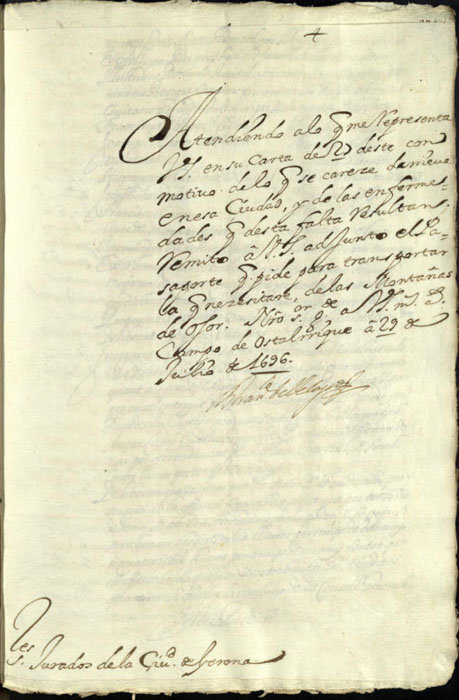 Atendiendo a lo q̃ me Representa
V.S. en su Carta de 27 deste con
motivo de lo q̃ se careze de nieve
en esa Ciudad, y de las enferme-
dades q̃ desta falta Resultan.
Remito â V.S. adjunto el Pa-
saporte q̃ pide para transportar
la q̃ nezesitare, de las Montañas
de Osor. Nro s.or g.e a V.S. m.s a.s
Campo de Ostalrrique â 29 de
Julio de 1696.
S.res Jurados de la Ciu.d de Gerona